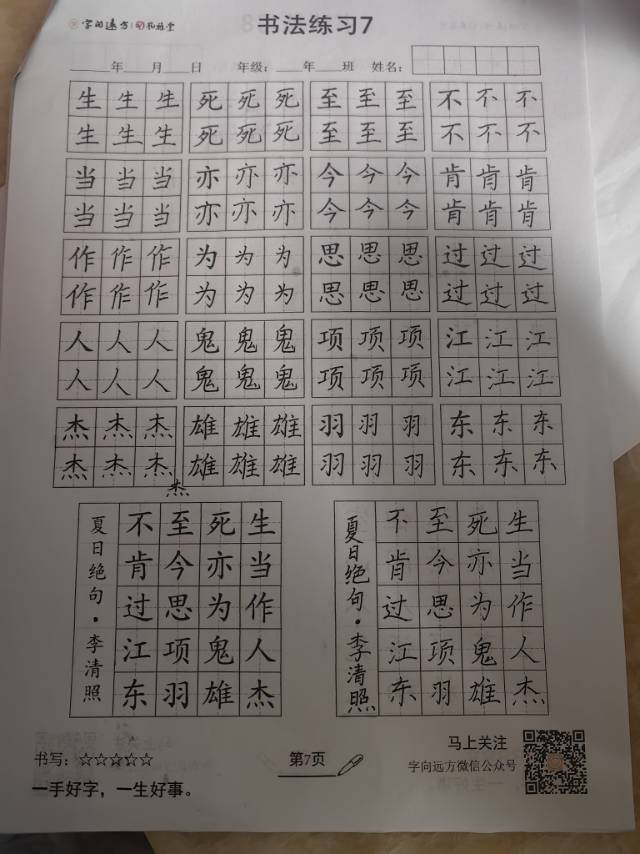 字向远方
书法练习7
____年____月____日 年级：____年____班 姓名：
生生生 死死死 至至至 不不不
生生生 死死死 至至至 不不不
当当当 亦亦亦 今今今 肯肯肯
当当当 亦亦亦 今今今 肯肯肯
作作作 为为为 思思思 过过过
作作作 为为为 思思思 过过过
人人人 鬼鬼鬼 项项项 江江江
人人人 鬼鬼鬼 项项项 江江江
杰杰杰 雄雄雄 羽羽羽 东东东
杰杰杰 雄雄雄 羽羽羽 东东东
杰
生当作人杰
死亦为鬼雄
至今思项羽
不肯过江东
夏日绝句·李清照
生当作人杰
死亦为鬼雄
至今思项羽
不肯过江东
夏日绝句·李清照
书写：☆☆☆☆☆
一手好字，一生好事。
第7页
马上关注
字向远方微信公众号